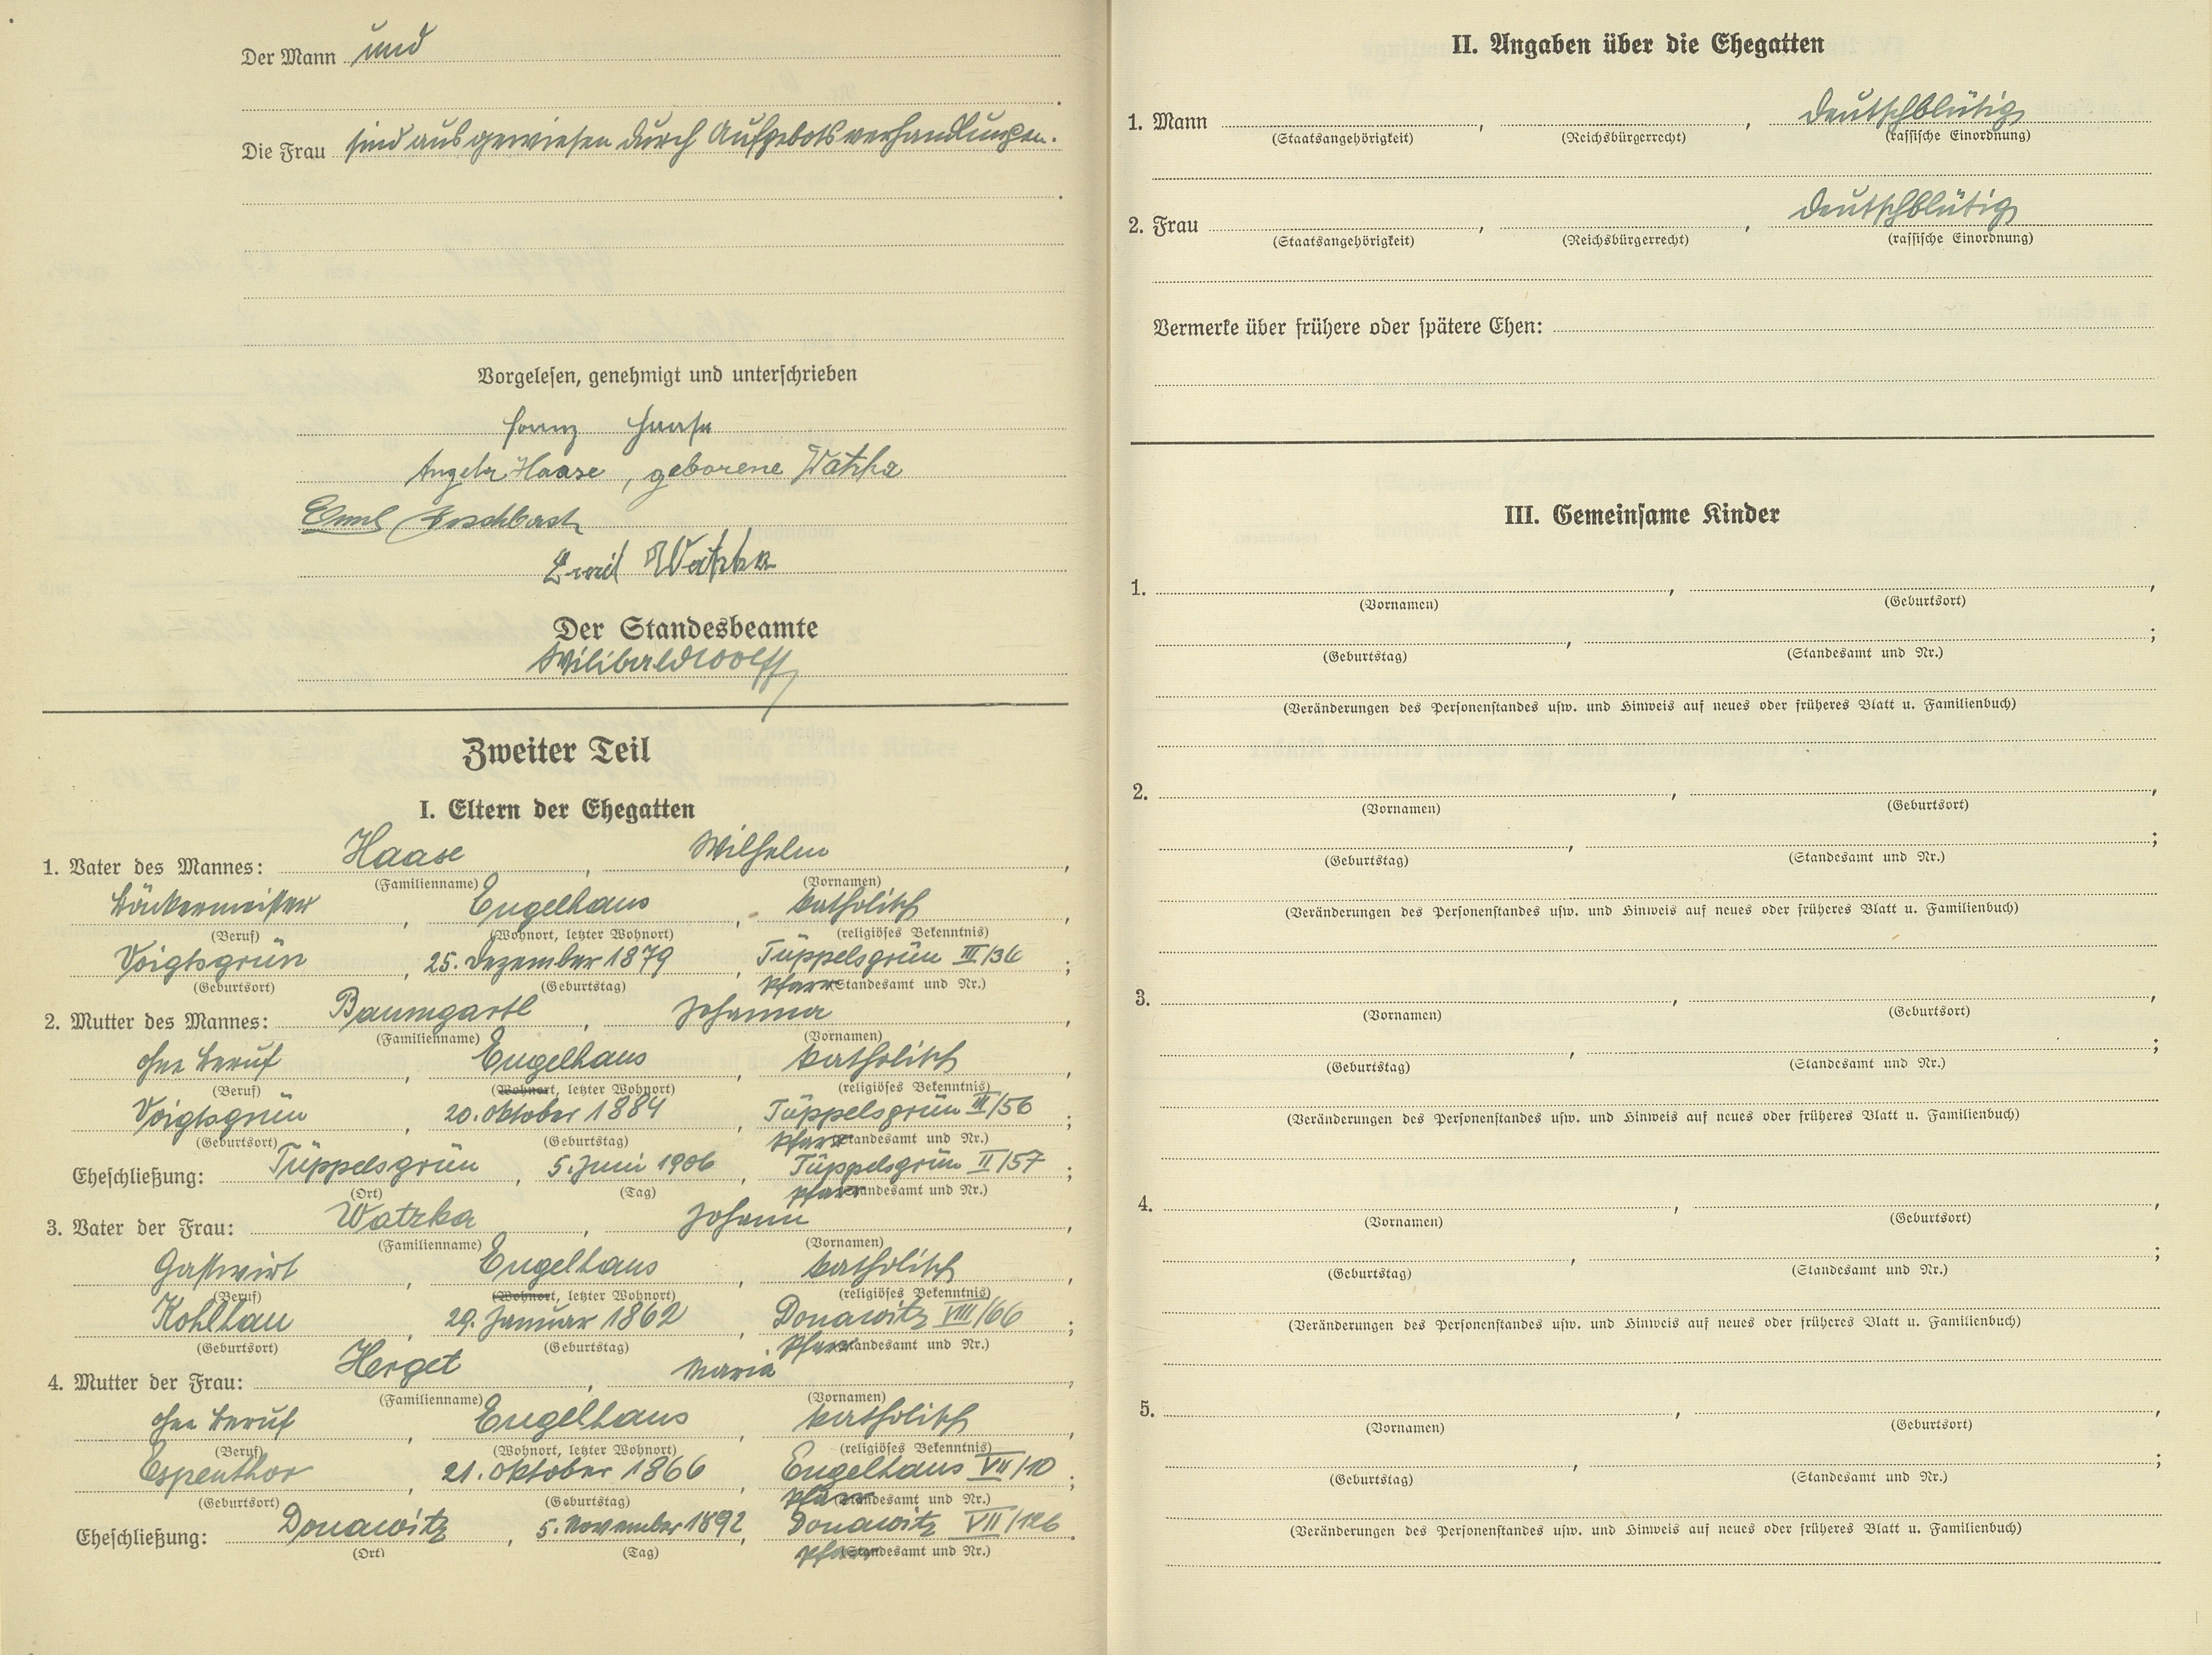 Der Mann und
Die Frau sind ausgewiesen durch Aufgebotsverhandlungen.
Vorgelesen, genehmigt und unterschrieben
Franz Haase
Angela Haase, geborene Watzka
Emil
Emil Watzka
Der Standesbeamte
Wilibald Wolff
Zweiter Teil
I. Eltern der Ehegatten
1. Vater des Mannes: Haase, Wilhelm,
(Familienname) (Vornamen)
Bäckermeister, Engelhaus, katholisch,
(Beruf) (Wohnort, letzter Wohnort) (religiöses Bekenntnis)
Voigtsgrün, 25. Dezember 1879, Tüppelsgrün III/36;
(Geburtsort) (Geburtstag) Pfarr (Standesamt und Nr.)
2. Mutter des Mannes: Baumgartl, Johanna,
(Familienname) (Vornamen)
ohne Beruf, Engelhaus, katholisch,
(Beruf) (Wohnort, letzter Wohnort) (religiöses Bekenntnis)
Voigtsgrün, 20. Oktober 1884, Tüppelsgrün III/56;
(Geburtsort) (Geburtstag) Pfarr (Standesamt und Nr.)
Eheschließung: Tüppelsgrün, 5. Juni 1906, Tüppelsgrün II/57;
(Ort) (Tag) Pfarr (Standesamt und Nr.)
3. Vater der Frau: Watzka, Johann,
(Familienname) (Vornamen)
Gastwirt, Engelhaus, katholisch,
(Beruf) (Wohnort, letzter Wohnort) (religiöses Bekenntnis)
Kohlhau, 29. Januar 1862, Donawitz VIII/66;
(Geburtsort) (Geburtstag) Pfarr (Standesamt und Nr.)
4. Mutter der Frau: Herget, Maria,
(Familienname) (Vornamen)
ohne Beruf, Engelhaus, katholisch,
(Beruf) (Wohnort, letzter Wohnort) (religiöses Bekenntnis)
Espenthor, 21. Oktober 1866, Engelhaus VII/10;
(Geburtsort) (Geburtstag) Pfarr (Standesamt und Nr.)
Eheschließung: Donawitz, 5. November 1892, Donawitz VII/126.
(Ort) (Tag) Pfarr (Standesamt und Nr.)
II. Angaben über die Ehegatten
1. Mann , , deutschblütig
(Staatsangehörigkeit) (Reichsbürgerrecht) (rassische Einordnung)
2. Frau , , deutschblütig
(Staatsangehörigkeit) (Reichsbürgerrecht) (rassische Einordnung)
Vermerke über frühere oder spätere Ehen:
III. Gemeinsame Kinder
1. , ,
(Vornamen) (Geburtsort)
, ;
(Geburtstag) (Standesamt und Nr.)
(Veränderungen des Personenstandes usw. und Hinweis auf neues oder früheres Blatt u. Familienbuch)
2. , ,
(Vornamen) (Geburtsort)
, ;
(Geburtstag) (Standesamt und Nr.)
(Veränderungen des Personenstandes usw. und Hinweis auf neues oder früheres Blatt u. Familienbuch)
3. , ,
(Vornamen) (Geburtsort)
, ;
(Geburtstag) (Standesamt und Nr.)
(Veränderungen des Personenstandes usw. und Hinweis auf neues oder früheres Blatt u. Familienbuch)
4. , ,
(Vornamen) (Geburtsort)
, ;
(Geburtstag) (Standesamt und Nr.)
(Veränderungen des Personenstandes usw. und Hinweis auf neues oder früheres Blatt u. Familienbuch)
5. , ,
(Vornamen) (Geburtsort)
, ;
(Geburtstag) (Standesamt und Nr.)
(Veränderungen des Personenstandes usw. und Hinweis auf neues oder früheres Blatt u. Familienbuch)